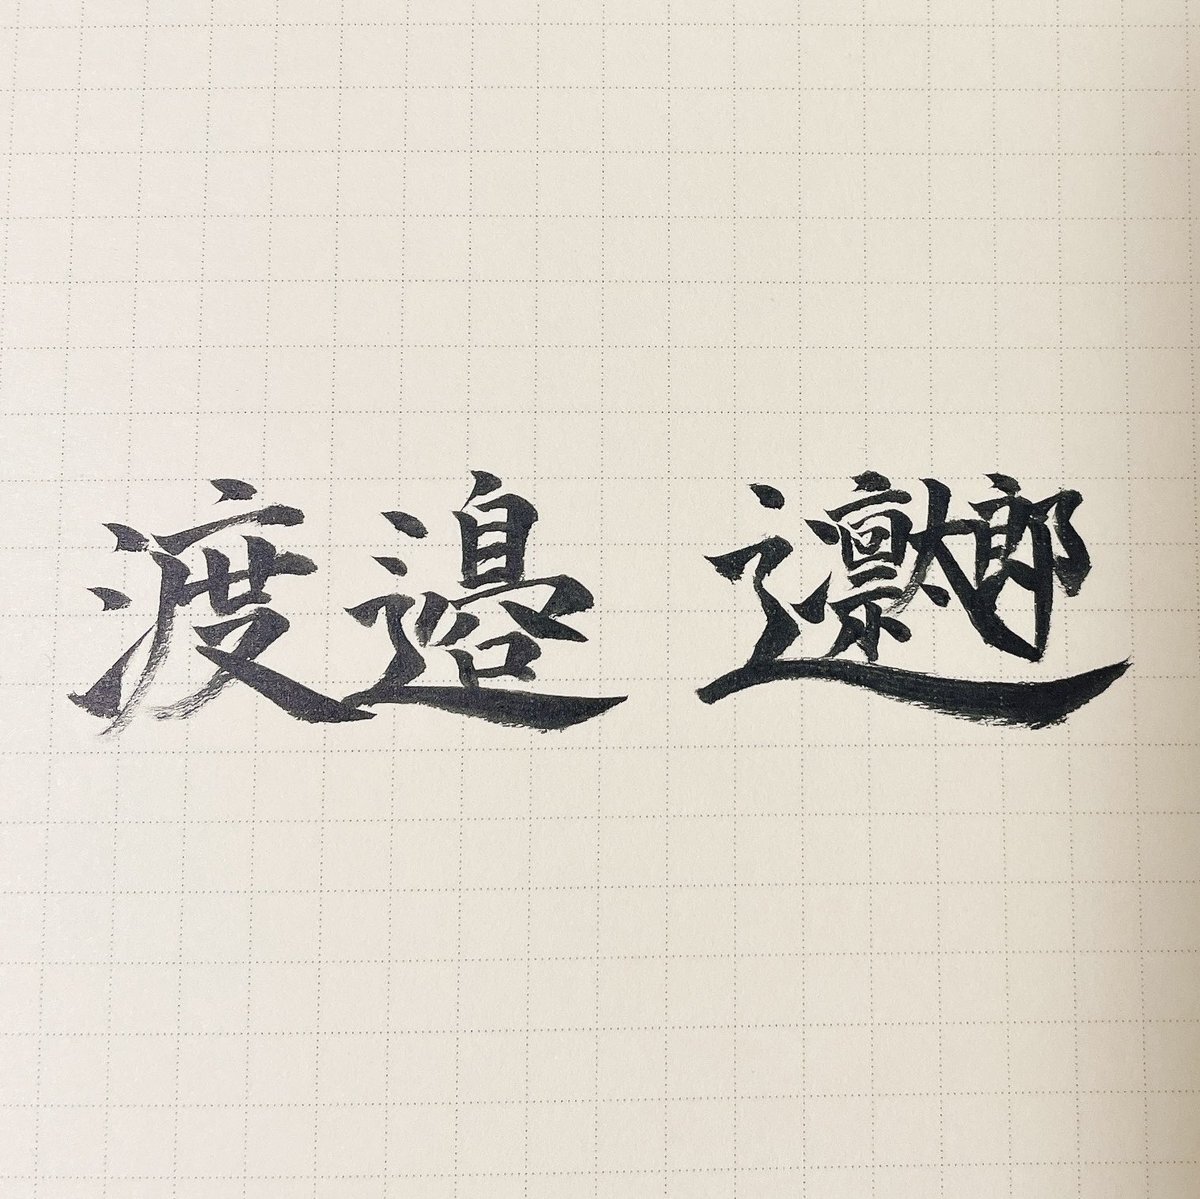 渡邉 凛太郎